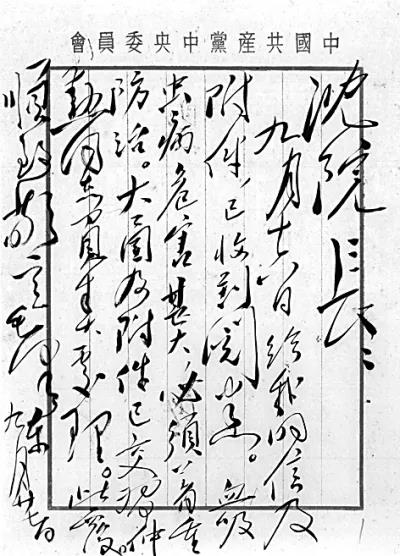 中國共産黨中央委員會
沈院長:
九月十六日給我的信及
附件,已收到閱悉。血吸
虫病危害甚大,必須着重
防治。大函及附件已交習仲
勳同志負責處理。此覆。
順致敬意 毛澤東 九月廿七日